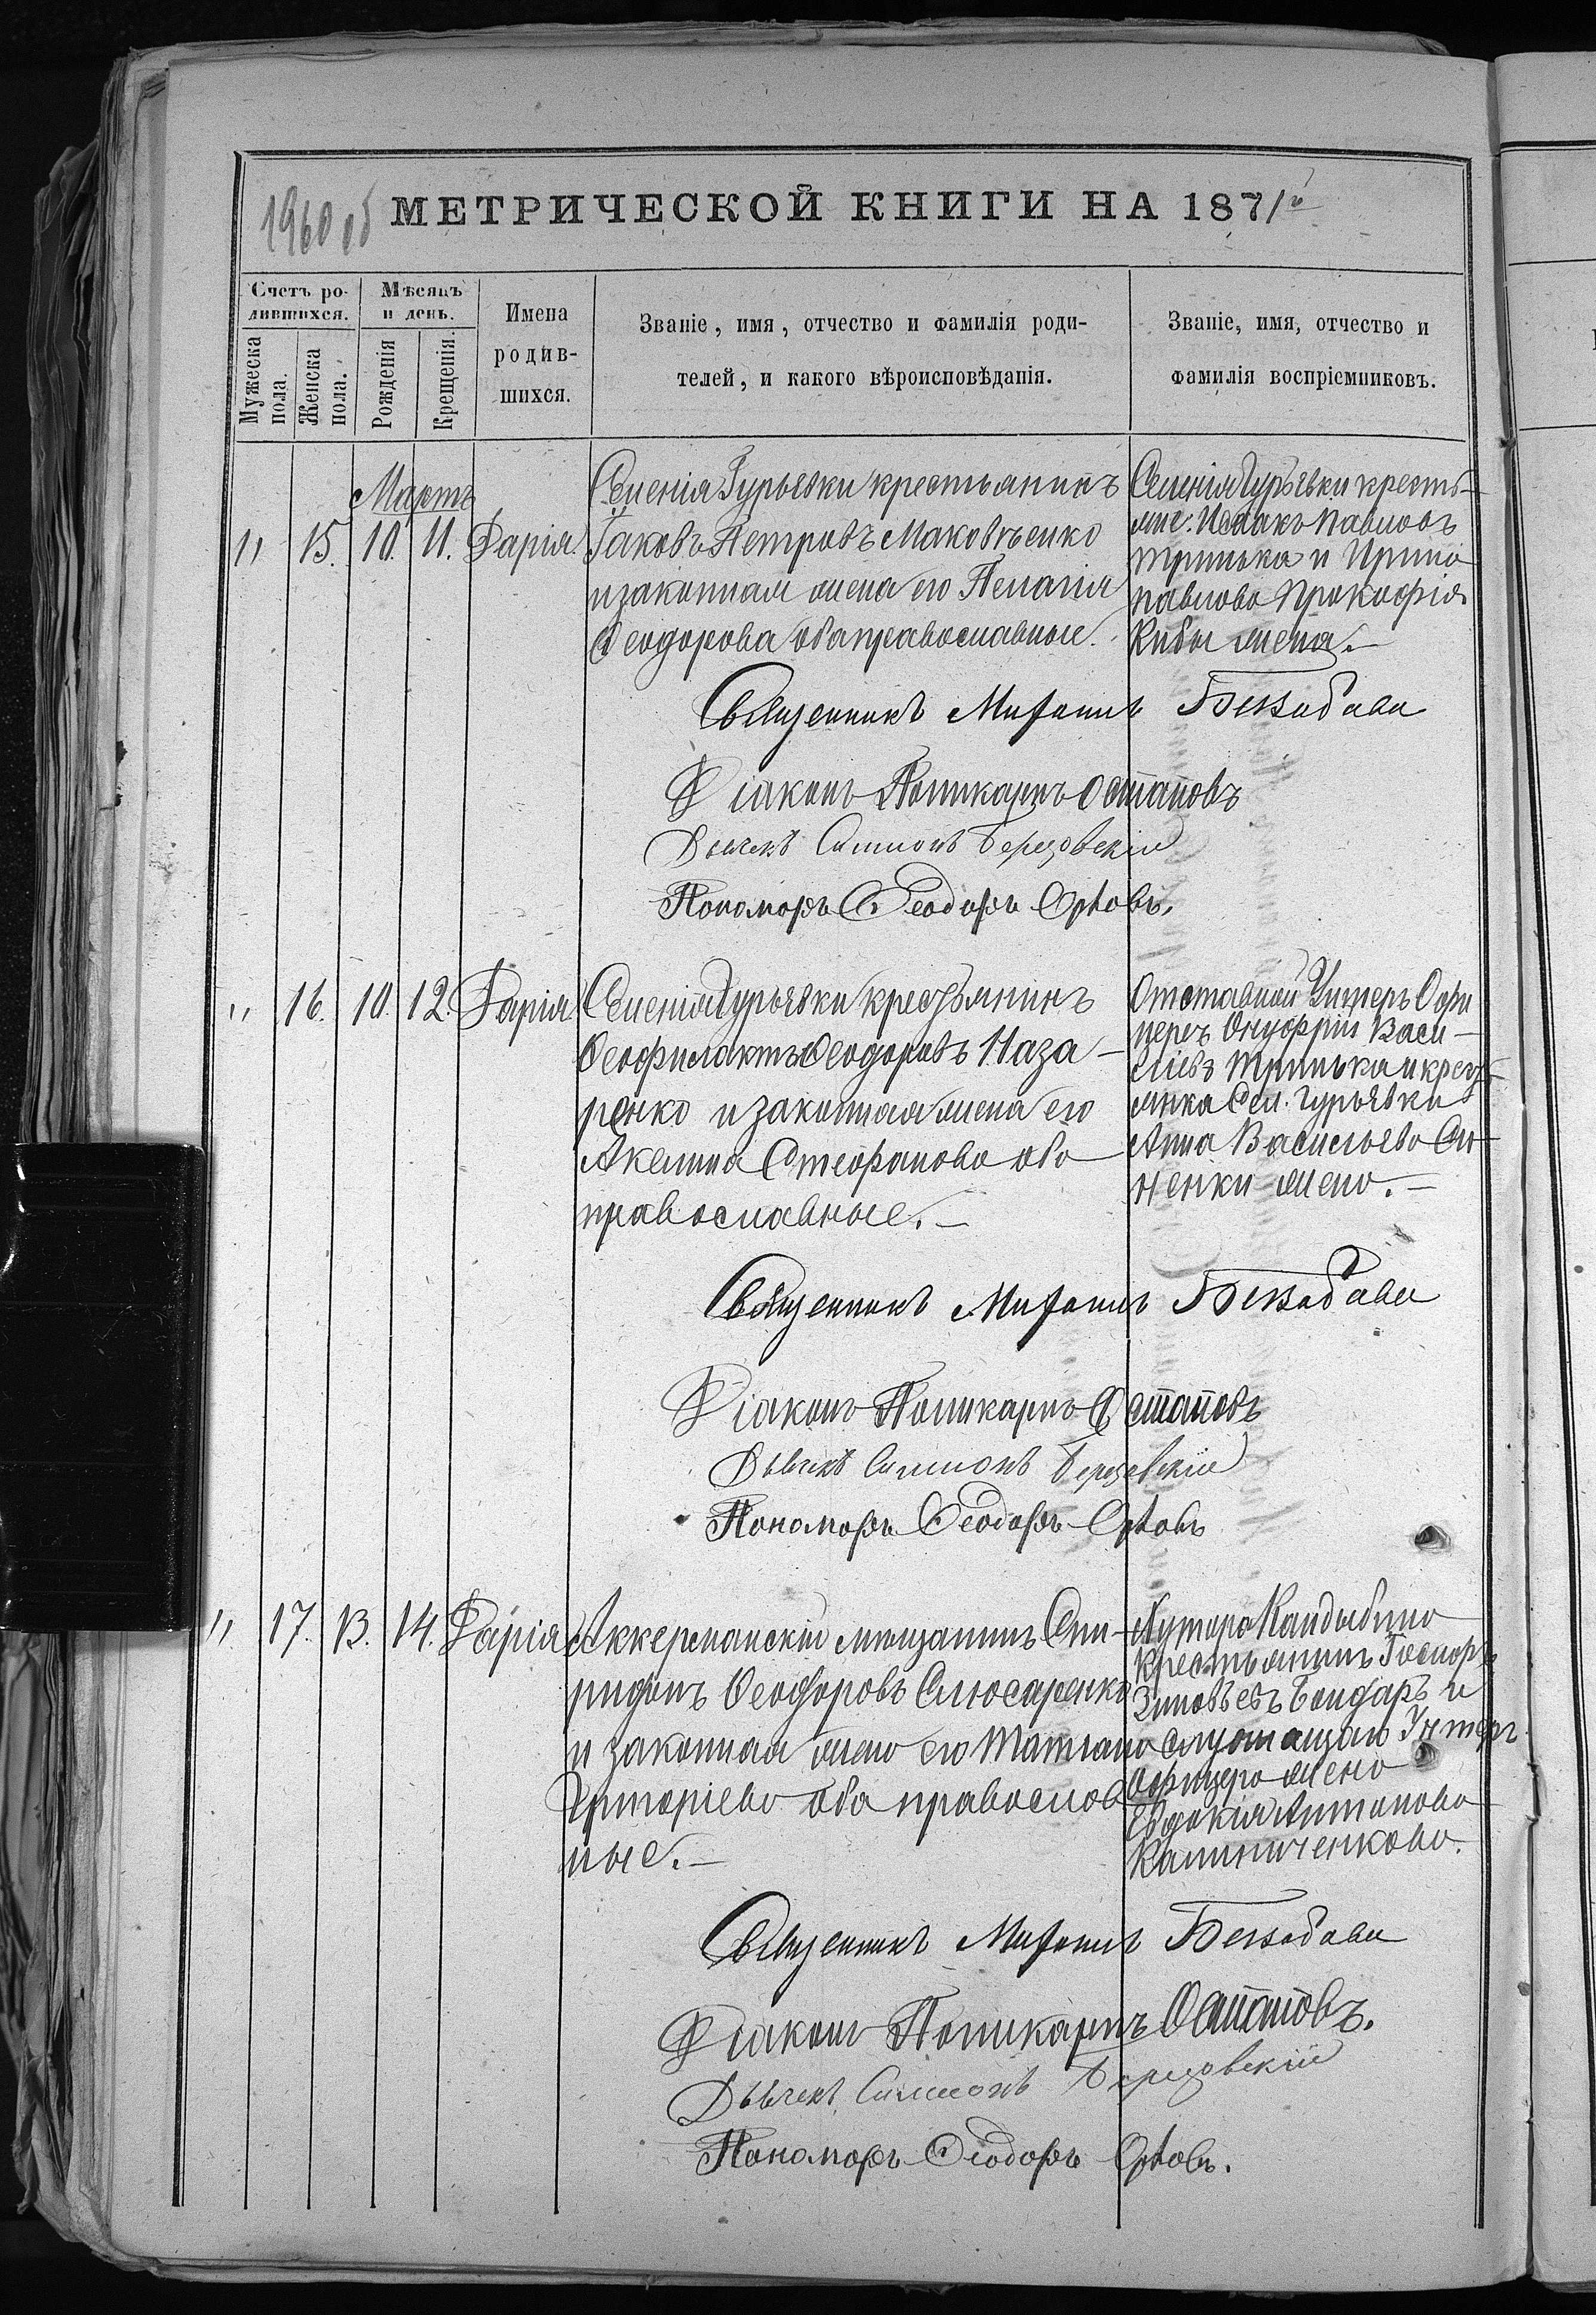 1960 об МЕТРИЧЕСКОЙ КНИГИ НА 1871й
Счетъ ро-
дившихся.
Мѣсяцъ
и день.
Мужеска
пола.
Женска
пола.
Рожденія
Крещенія.
Имена
родив-
шихся.
Званіе, имя, отчество и фамилія роди-
телей, и какого вѣроисповѣданія.
Званіе, имя, отчество и
фамилія воспріемниковъ.
Мартъ
" 15. 10. 11. Дарія
Селенія Гурьевки крестьянинъ
Іаковъ Петровъ Маковѣенко
и законная жена его Пелагія
Ѳеодорова оба православные.
Селенія Гурьевки кресть-
яне: Исаакъ Павловъ
Тринька и Ирина
Павлова Прокофія
Кибы жена.-
Священникъ Митрофанъ
Діаконъ Поликарпъ Остаповъ
Дьячекъ Симеонъ Березовскій
Пономарь Ѳеодоръ Орловъ.
" 16. 10. 12. Дарія
Селенія Гурьевки крестьянинъ
Ѳеофилактъ Ѳеодоровъ Наза-
ренко и законная жена его
Акелина Стефанова оба
православные.-
Отставной Унтеръ Офи
церъ Онуфрій Васи-
ліевъ Тринька и крест-
янка Сел. Гурьевки
Анна Васильева Си-
ненки жена.-
Священникъ Митрофанъ
Діаконъ Поликарпъ Остаповъ
Дьячекъ Симеонъ Березовскій
Пономарь Ѳеодоръ Орловъ
" 17. 13. 14. Дарія
Аккерманскій мѣщанинъ Спи-
ридонъ Ѳеодоровъ Слюсаренко
и законная жена его Татіана
Григоріева оба православ
ные.-
Хутора Кандыбино
крестьянинъ
Зиновьевъ Бондарь и
служащаго Унтеръ
Офицера жена
Евдокія Антонова
Калиниченкова.
Священникъ Митрофанъ
Діаконъ Поликарпъ Остаповъ.
Дьячекъ Симеонъ Березовскій
Пономарь Ѳеодоръ Орловъ.